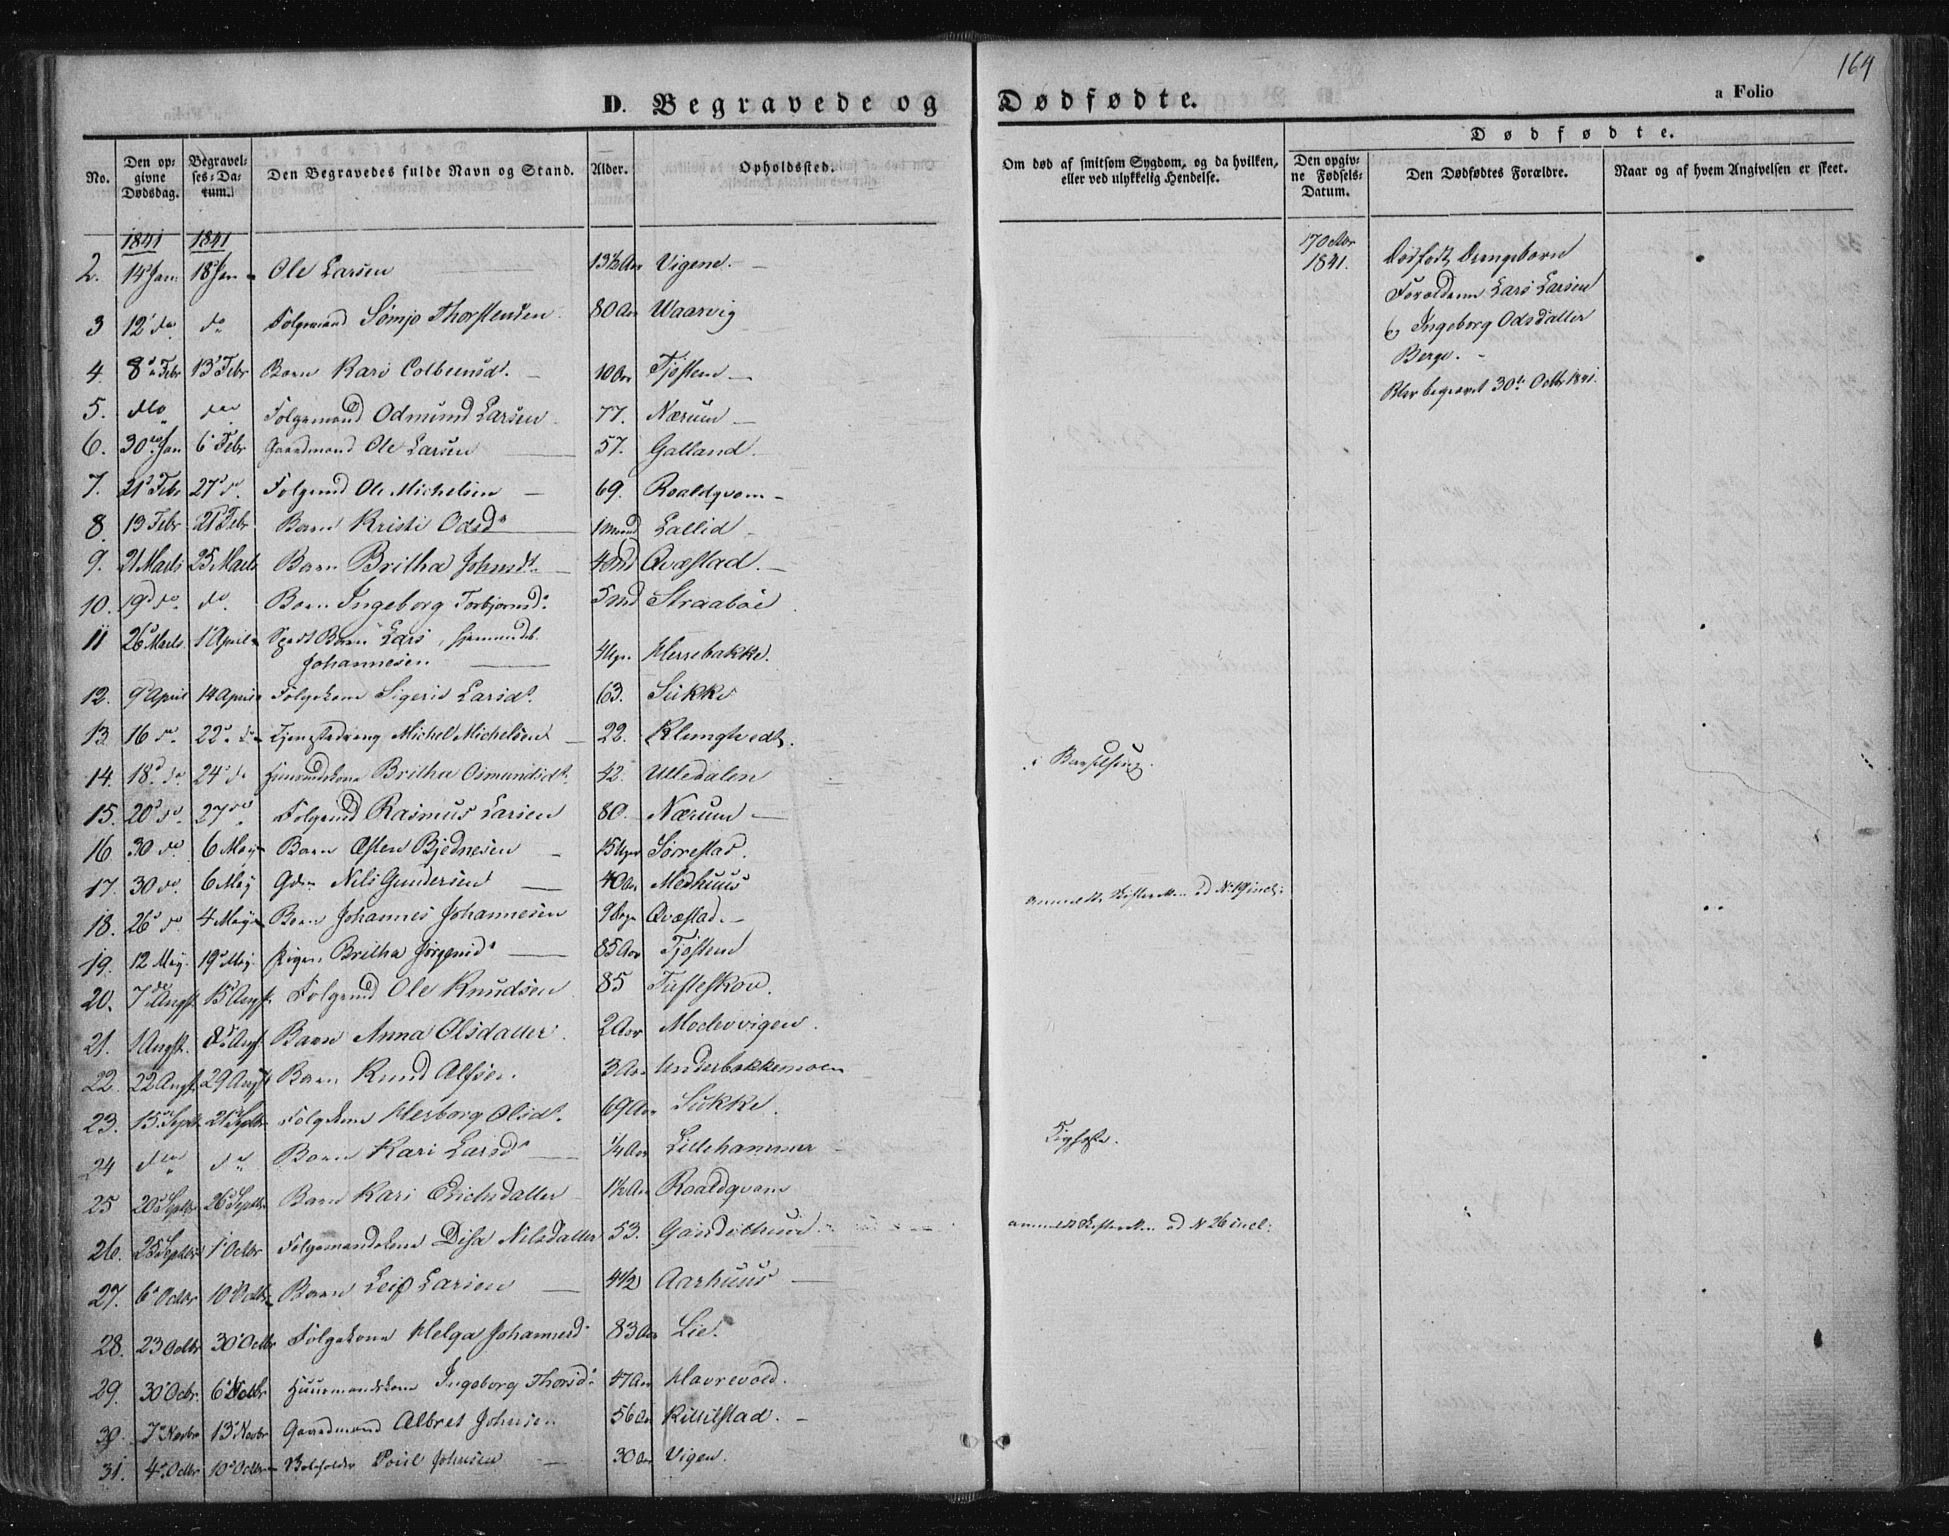 164
D. Begravede og Dødfødte.
a Folio
No.
Den opgivne Dødsdag.
Begravelses-Datum.
Den Begravedes fulde Navn og Stand.
Alder.
Opholdssted.
Om død af smitsom Sygdom, og da hvilken, eller ved ulykkelig Hendelse.
Dødfødte.
Den opgivne Fødsels-Datum.
Den Dødfødtes Forældre.
Naar og af hvem Angivelsen er skeet.
1841 1841
2. 14 Jan. 18 Jan Ole Larsen 13½ Aar Vigene.
3 12 do. do Folgemand Sømjo Thorstensen 80 Aar Waarvig
4. 8 Febr 13 Febr Barn Kari Colbeinsd. 10 Aar Tjøstem
5. dto do Folgemand Odmund Larsen 77. Nærum
6. 30 Jan 6 Febr Gaardmand Ole Larsen 57. Galland.
7. 21 Febr 27 do. Folgemd Ole Michelsen 69. Roaldqvam
8. 13 Febr 21 Febr Barn Kristi Odsd 1 Mnd Lallid
9. 21 Marts 25 Marts Barn Britha Johnsd. 4 Md Qvæstad.
10. 19 do. do. Barn Ingeborg Torbjørnsd. 5 Md Straabøe
11 26 Marts. 1 April Spædt Barn Lars
Johannesen 4 Ugr. Herrebakke.
12. 9 April 14 April Folgekone Sigeris Larsd. 63. Sukke
13 16 do. 22 do Tjenestedreng Michel Michelsen 22. Klungtvedt.
14. 18 do 24 do Huusmandskone Britha Osmundsd. 42. Utledalen i Barselseng.
15. 20 do. 27 do Folgemd Rasmus Larsen 80. Nærum
16 30 do. 6 May Barn Østen Bjednesen 15 Uger Sørrestad.
17. 30 do. 6 May Gdm Nils Gundersen 40 Aar Medhuus
18. 26 do 4 May Barn Johannes Johannesen 9 Dage Qvæstad.
19. 12 May. 19 May. Pigen Britha Jørgensd 85 Aar Tjøstem
20. 7 Augst. 15 Augst. Folgemd Ole Knudsen 85 Tufteskou.
21. 1 Augst. 8 Augst Barn Anna Olsdatter. 2 Aar Mochevigen.
22. 22 Augst. 29 Augst Barn Knud Alfsen. 3 Aar Underbakkemoen
23. 15 Septb. 21 Septbr Folgekone Herborg Olsd. 69 Aar Sukke.
24 dto do Barn Kari Larsd ¼ Aar Lillehammer
25 20 Septbr. 26 Septbr. Barn Kari Erichsdatter 1½ Aar Roaldqvam
26. 25 Septbr 1 Octbr Folgemandskone Disa Nilsdatter 53.
27. 6 Octbr 10 Octbr Barn Leif Larsen 4½ Aarhuus
28. 23 Octbr 30 Octbr Folgekone Helga Johannesd 83 Aar Lie.
29. 30 Ocbr. 6 Huusmandskone Ingeborg Thorsd. 47 Aar Havrevold.
30. 7 Novbr 13 Novbr Gaardmand Albret Johnsen 56 Aar Kittilstad.
31. 4 Octbr 10 Octbr Poul Johnsen 30 Aar Vigen.
17 Octbr
1841.
Dødfødt Drengebarn
Forældrene Lars Larsen
og Ingeborg Odsdatter
Berge.
Blev begravet 30te Octbr 1841.